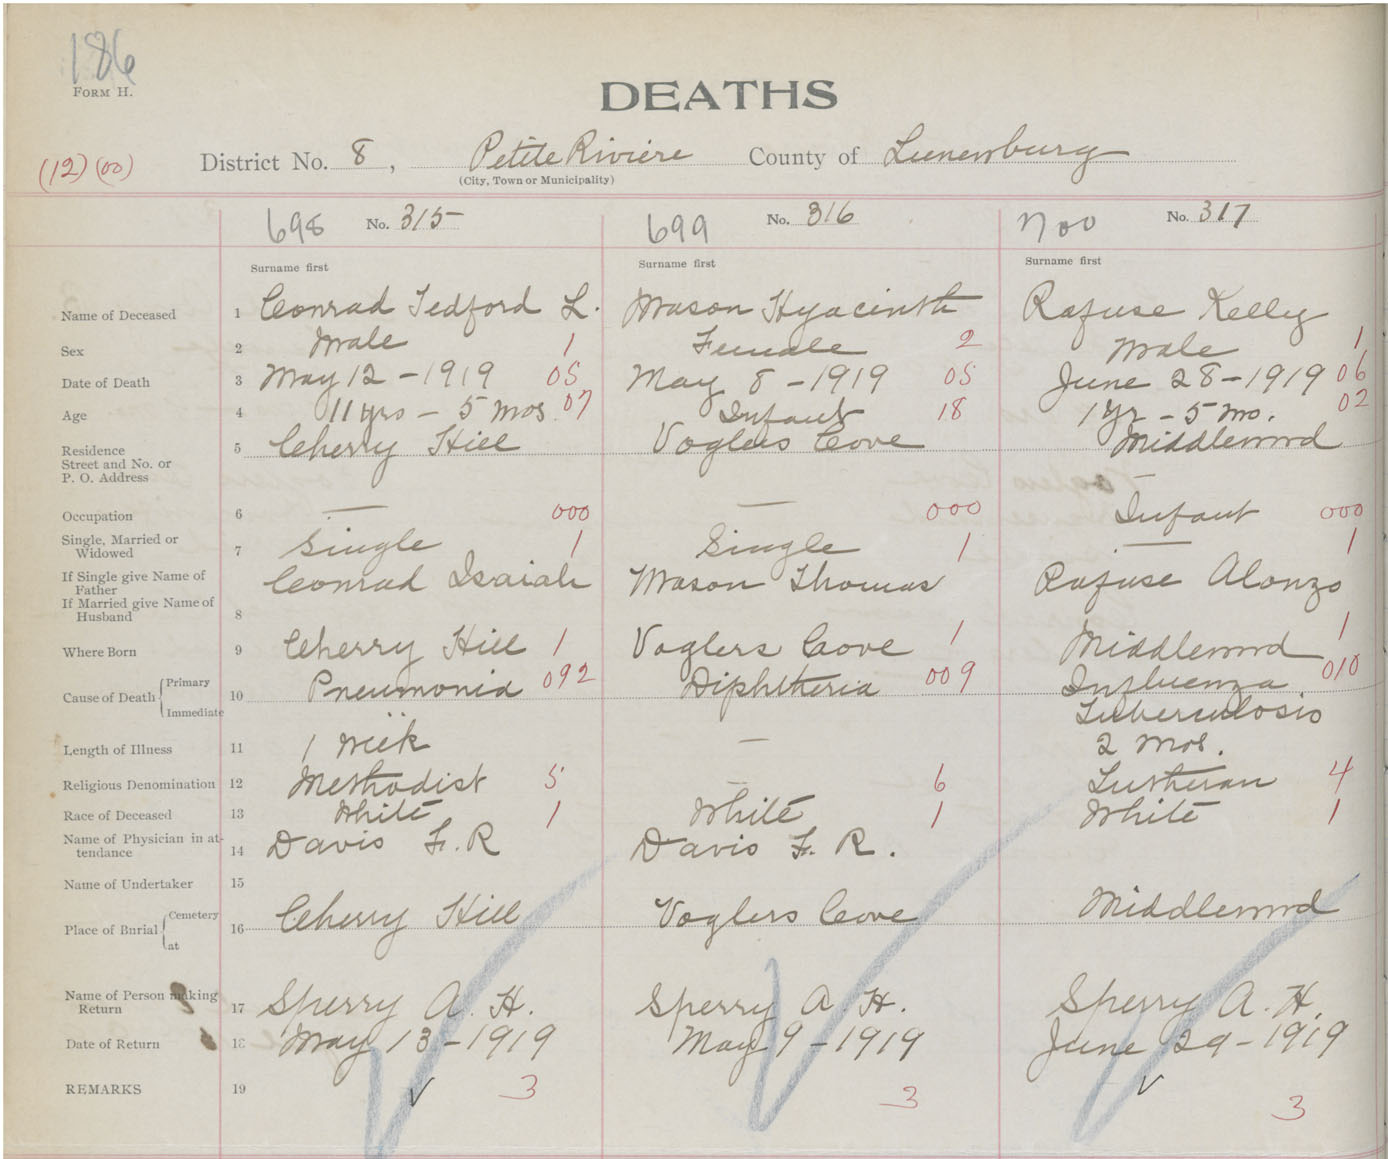 186
FORM H.
DEATHS
(12) (00) District No. 8, Petite Riviere County of Lunenburg
(City, Town or Municipality)
698 No. 315 699 No. 316 700 No. 317
Surname first Surname first Surname first
Name of Deceased 1 Conrad Tedford L. Mason Hyacinth Rafuse Kelly
Sex 2 Male 1 Female 2 Male 1
Date of Death 3 May 12 - 1919 05 May 8 - 1919 05 June 28 - 1919 06
Age 4 11 yrs - 5 mos. 07 Infant 18 1 yr - 5 mo. 02
Residence 5 Cherry Hill Voglers Cove Middlewood
Street and No. or
P. O. Address
Occupation 6 — 000 — 000 Infant 000
Single, Married or
Widowed 7 Single 1 Single 1 — 1
If Single give Name of
Father Conrad Isaiah Mason Thomas Rafuse Alonzo
If Married give Name of
Husband 8
Where Born 9 Cherry Hill 1 Voglers Cove 1 Middlewood 1
Cause of Death Primary 10 Pneumonia 092 Diphtheria 009 Influenza 010
Immediate Tuberculosis
Length of Illness 11 1 week — 2 mos.
Religious Denomination 12 Methodist 5 — 6 Lutheran 4
Race of Deceased 13 White 1 White 1 White 1
Name of Physician in at-
tendance 14 Davis F. R Davis F. R.
Name of Undertaker 15
Place of Burial Cemetery 16 Cherry Hill Voglers Cove Middlewood
at
Name of Person making
Return 17 Sperry A. H. Sperry A. H. Sperry A. H.
Date of Return 18 May 13 - 1919 May 9 - 1919 June 29 - 1919
REMARKS 19 3 3 3